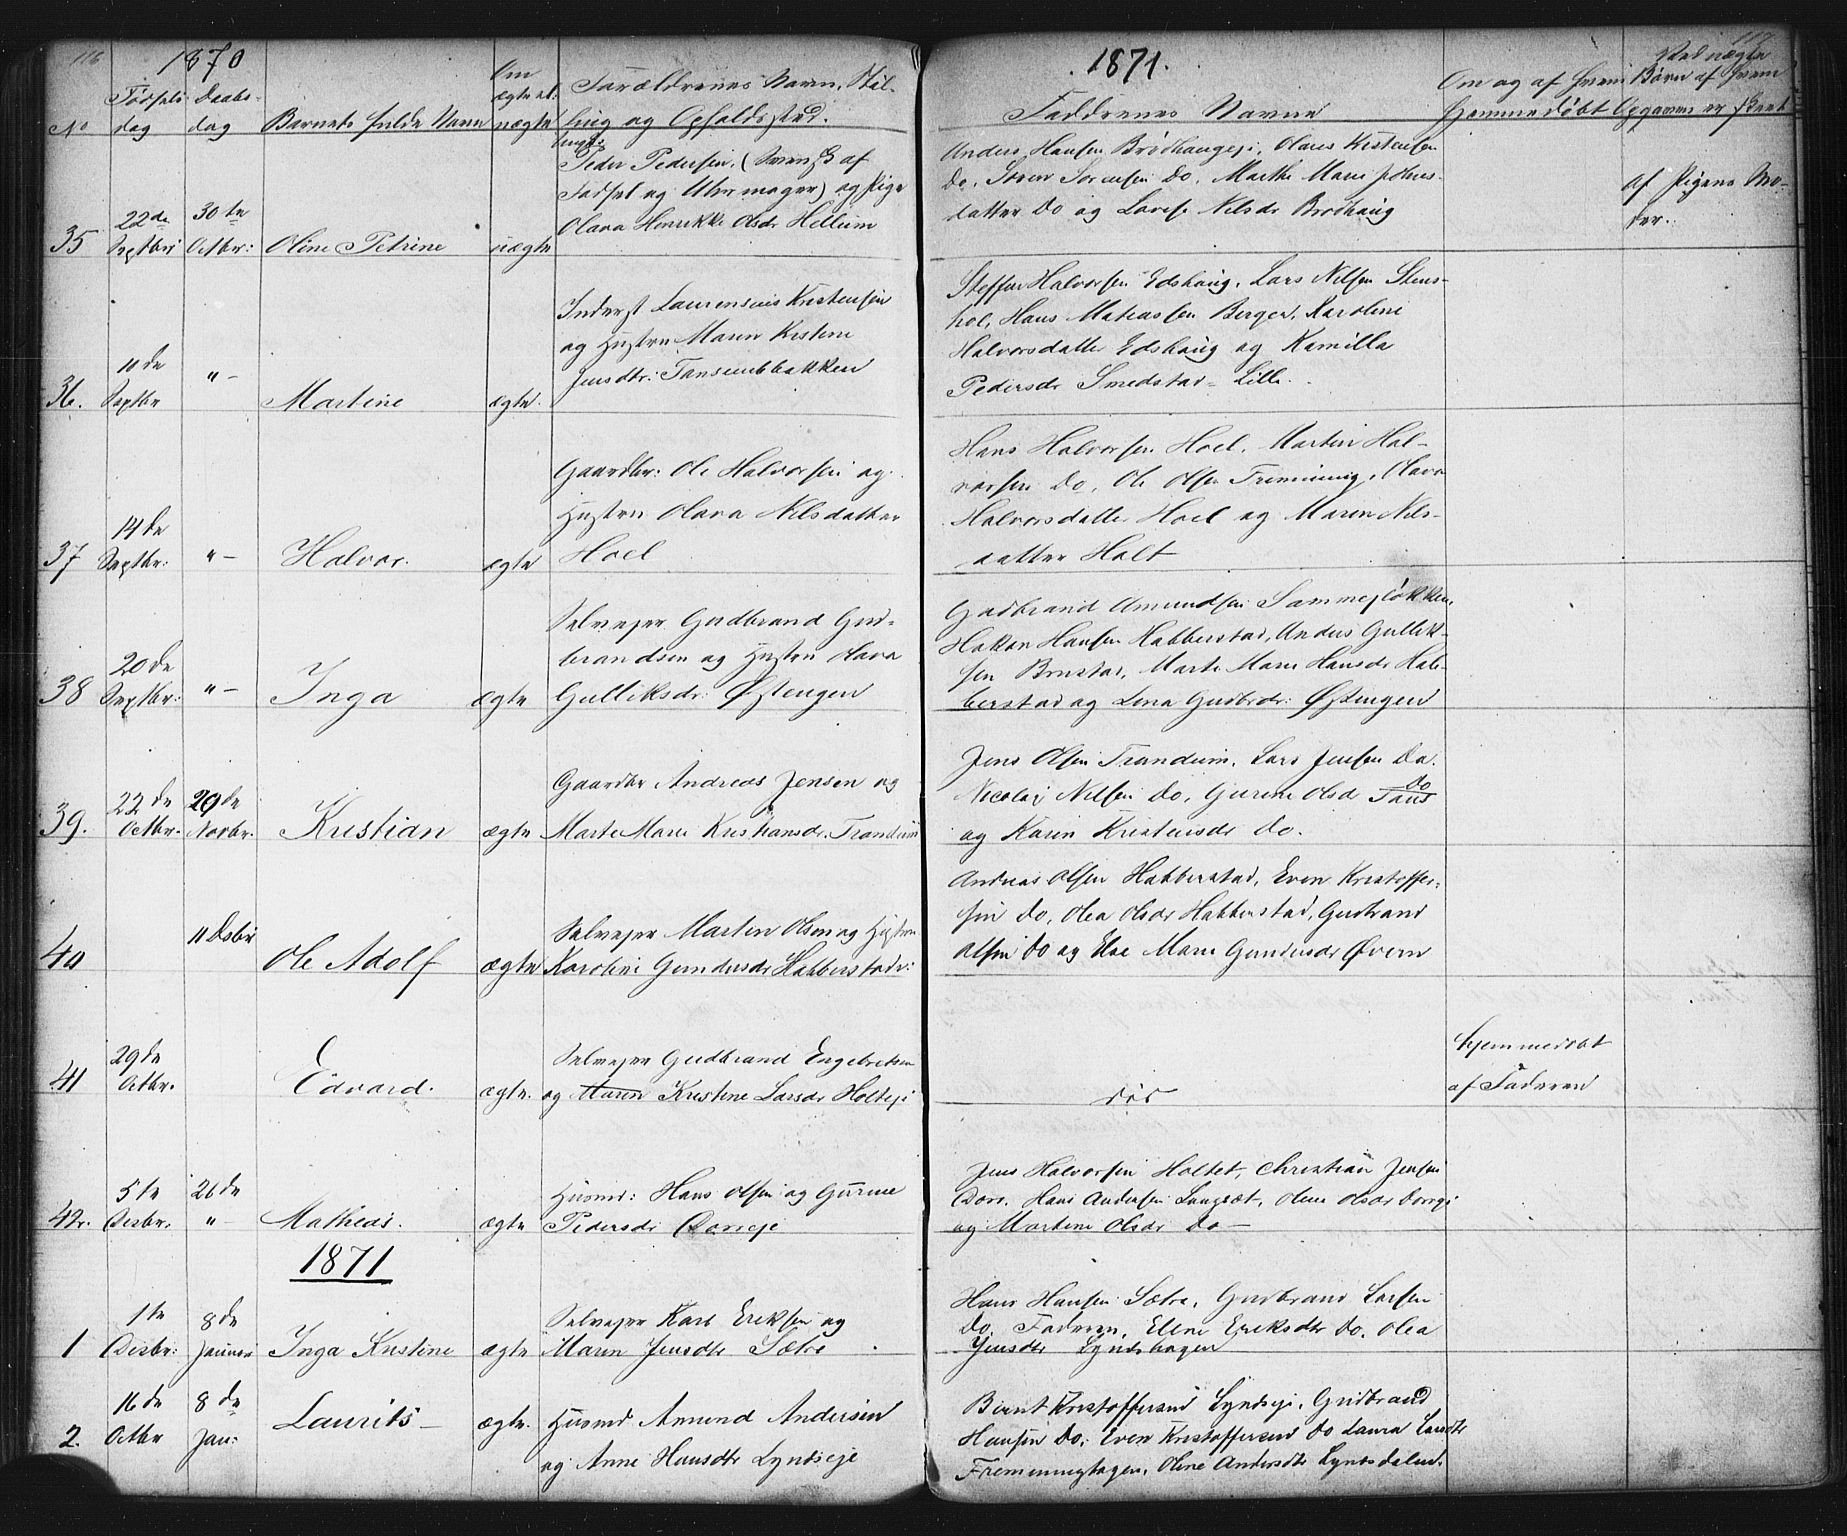 116
1870
No
Fødsels
dag
Daabs-
dag
Barnets fulde Navn
Om
ægte el.
uægte
Forældrenes Navn, Stil-
ling og Opholdssted.
35
22de
Septbr
30te
Octbr:
Oline Petrine
uægte
Ungk.
Peder Pedersen, (Svensk af
Fødsel og Uhrmager) og Pige
Olava Henrikke Olsdr Hellum
36.
10de
Septbr
"-
Martine
ægte.
Inderst Laurensius Kristensen
og Hustru Maren Kristine
Jensdtr: Tansembakken
37
14de
Septbr:
"-
Halvor.
ægte
Gaardbr: Ole Halvorsen og
Hustru Olava Nilsdatter
Hoel
38
20de
Septbr:
"-
Inga
ægte
Selveier Gudbrand Gud-
brandsen og Hustru Olava
Gulliksdr: Østengen
39.
22de
Octbr.
20de
Novbr.
Kristian
ægte
Gaardbr Andreas Jensen og
Marte Marie Kristiansdr. Trandum
40
11 Dsbr
Ole Adolf
ægte
Selveier Martin Olsen og Hustru
Karoline Gundersdr Habberstad:
41
29de
Octbr.
Edvard.
ægte.
Selveier Gudbrand Engebretsen
og Maren Kristine Larsdr Holteje
42.
5te
Desbr.
26de
"-
Matheas.
ægte
Husmd: Hans Olsen og Gurine
Pedersdr Dorreje
1871
1
1te
Desbr:
8de
Januar
Inga Kristine
ægte
Selveier Karl Eriksen og
Maren Jensdtr Sætre
2.
16de
Octbr
8de
Jan:
Laurits-
ægte.
Husmd Amund Andersen
og Anne Hansdtr Lyndseje
117
1871.
Faddrenes Navne
Om og af hvem
hjemmedøbt
Ved uægte
Børn af hvem
Opgaven er skeet
Anders Hansen Brødhaugeje, Olaus Kristensen
Do, Søren Sørensen Do, Marthe Marie Johns-
datter Do og Lovise Nilsdr Brødhaug
af Pigens Mo-
der.
Steffen Halvorsen Edshaug, Lars Nilsen Stens-
hol, Hans Mathiassen Berger, Karoline
Halvorsdatter Edshaug og Kamilla
Pedersdr Smedstad-Lille.
Hans Halvorsen Hoel, Martin Hal-
vorsen Do, Ole Olsen Fremming, Olava
Halvorsdatter Hoel og Maren Nils-
datter Holt
Gudbrand Amundsen Sammesløkken,
Hakon Hansen Habberstad, Anders Gullik-
sen Brustad, Marte Marie Hansdr Hab-
berstad og Lena Gudbrdr: Østengen
Jens Olsen Trandum, Lars Jensen Do.
Nicolaj Nilsen Do, Gurine Olsd Taus Do
og Karen Kristensdr Do.
Andreas Olsen Habberstad, Even Kristoffer-
sen Do, Olea Olsdr Habberstad, Gudbrand
Olsen Do og Else Marie Gundersdr Øvern
død
Hjemmedøbt
af Faderen
Jens Halvorsen Holtet, Christian Jensen
Dorr, Hans Andersen Langset, Olene Olsdr Dorreje
og Martine Olsdr Do-
Hans Hansen Sætre, Gudbrand Larsen
Do, Faderen, Ellene Eriksdtr Do, Olea
Jensdtr Lyndshagen
Bernt Kristoffersen Lyndseje, Gudbrand
Hansen Do, Even Kristoffersen Do Laura Larsdtr
Fremminghagen, Oline Andersdtr Lyndsdalen.